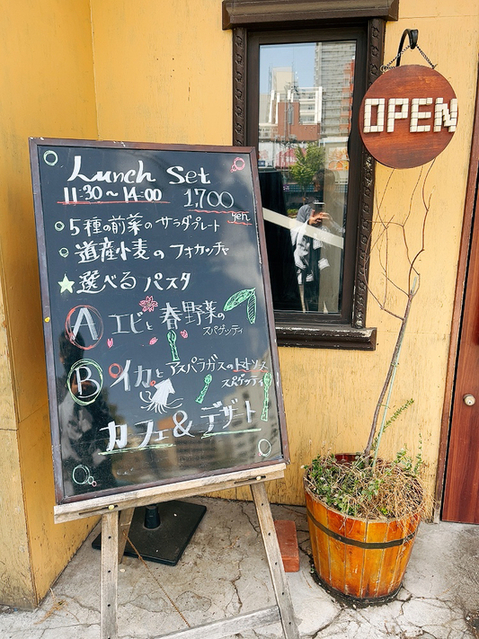 Lunch Set
11:30～14:00 1,700 yen
5種の前菜のサラダプレート
道産小麦のフォカッチャ
☆選べるパスタ
A エビと春野菜の
スパゲッティ
B イカとアスパラガスのトマトソース
スパゲッティ
カフェ&デザート
OPEN